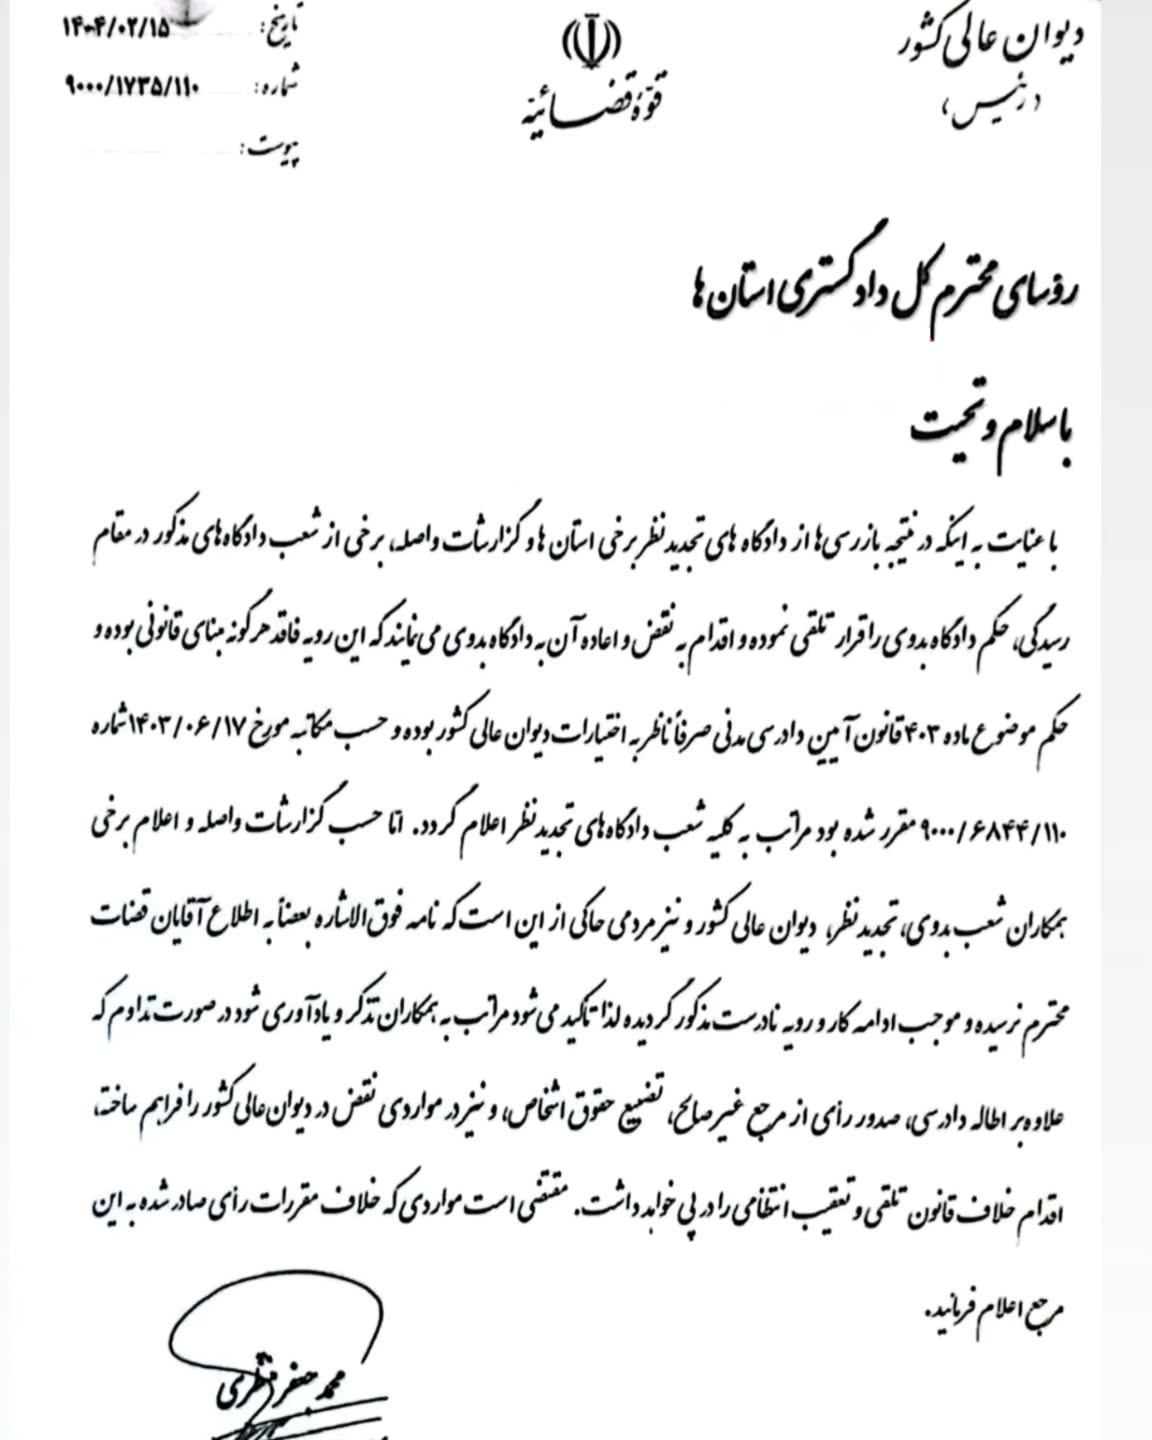 دیوان عالی کشور
«رئیس»
قوّهٔ قضائیّه
تاریخ: ۱۴۰۴/۰۲/۱۵
شماره: ۹۰۰۰/۱۷۳۵/۱۱۰
پیوست:
رؤسای محترم کل دادگستری استان ها
با سلام و تحیت
با عنایت به اینکه در نتیجه بازرسی‌ها از دادگاه های تجدیدنظر برخی استان ها و گزارشات واصله، برخی از شعب دادگاه‌های مذکور در مقام
رسیدگی، حکم دادگاه بدوی را قرار تلقی نموده و اقدام به نقض و اعاده آن به دادگاه بدوی می‌نمایند که این رویه فاقد هرگونه مبنای قانونی بوده و
حکم موضوع ماده ۴۰۳ قانون آیین دادرسی مدنی صرفاً ناظر به اختیارات دیوان عالی کشور بوده و حسب مکاتبه مورخ ۱۴۰۳/۰۶/۱۷ شماره
۹۰۰۰/۶۸۴۴/۱۱۰ مقرر شده بود مراتب به کلیه شعب دادگاه‌های تجدیدنظر اعلام گردد. امّا حسب گزارشات واصله و اعلام برخی
همکاران شعب بدوی، تجدیدنظر، دیوان عالی کشور و نیز مردمی حاکی از این است که نامه فوق‌الاشاره بعضاً به اطلاع آقایان قضات
محترم نرسیده و موجب ادامه کار و رویه نادرست مذکور گردیده لذا تاکید می‌شود مراتب به همکاران تذکر و یادآوری شود در صورت تداوم که
علاوه بر اطاله دادرسی، صدور رأی از مرجع غیرصالح، تضییع حقوق اشخاص، و نیز در مواردی نقض در دیوان عالی کشور را فراهم ساخته،
اقدام خلاف قانون تلقی و تعقیب انتظامی را در پی خواهد داشت. مقتضی است مواردی که خلاف مقررات رأی صادر شده به این
مرجع اعلام فرمائید.
محمد جعفر منتظری